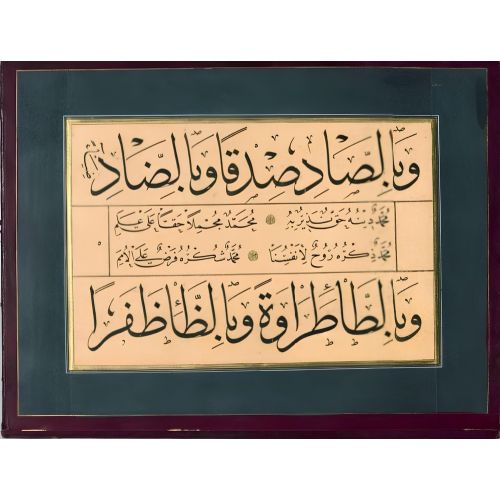 وَبِالصَّادِ صِدْقًا وَبِالضَّادِ
مُحَمَّدٌ دِينُهُ حَقٌّ نَدِينُ بِهِ مُحَمَّدٌ مُجْمِلًا حَقًّا عَلَى عَلَمِ
مُحَمَّدٌ ذِكْرُهُ رُوحٌ لِأَنْفُسِنَا مُحَمَّدٌ شُكْرُهُ فَرْضٌ عَلَى الْأُمَمِ
وَبِالطَّاءِ طَرَاوَةً وَبِالظَّاءِ ظَفَرًا